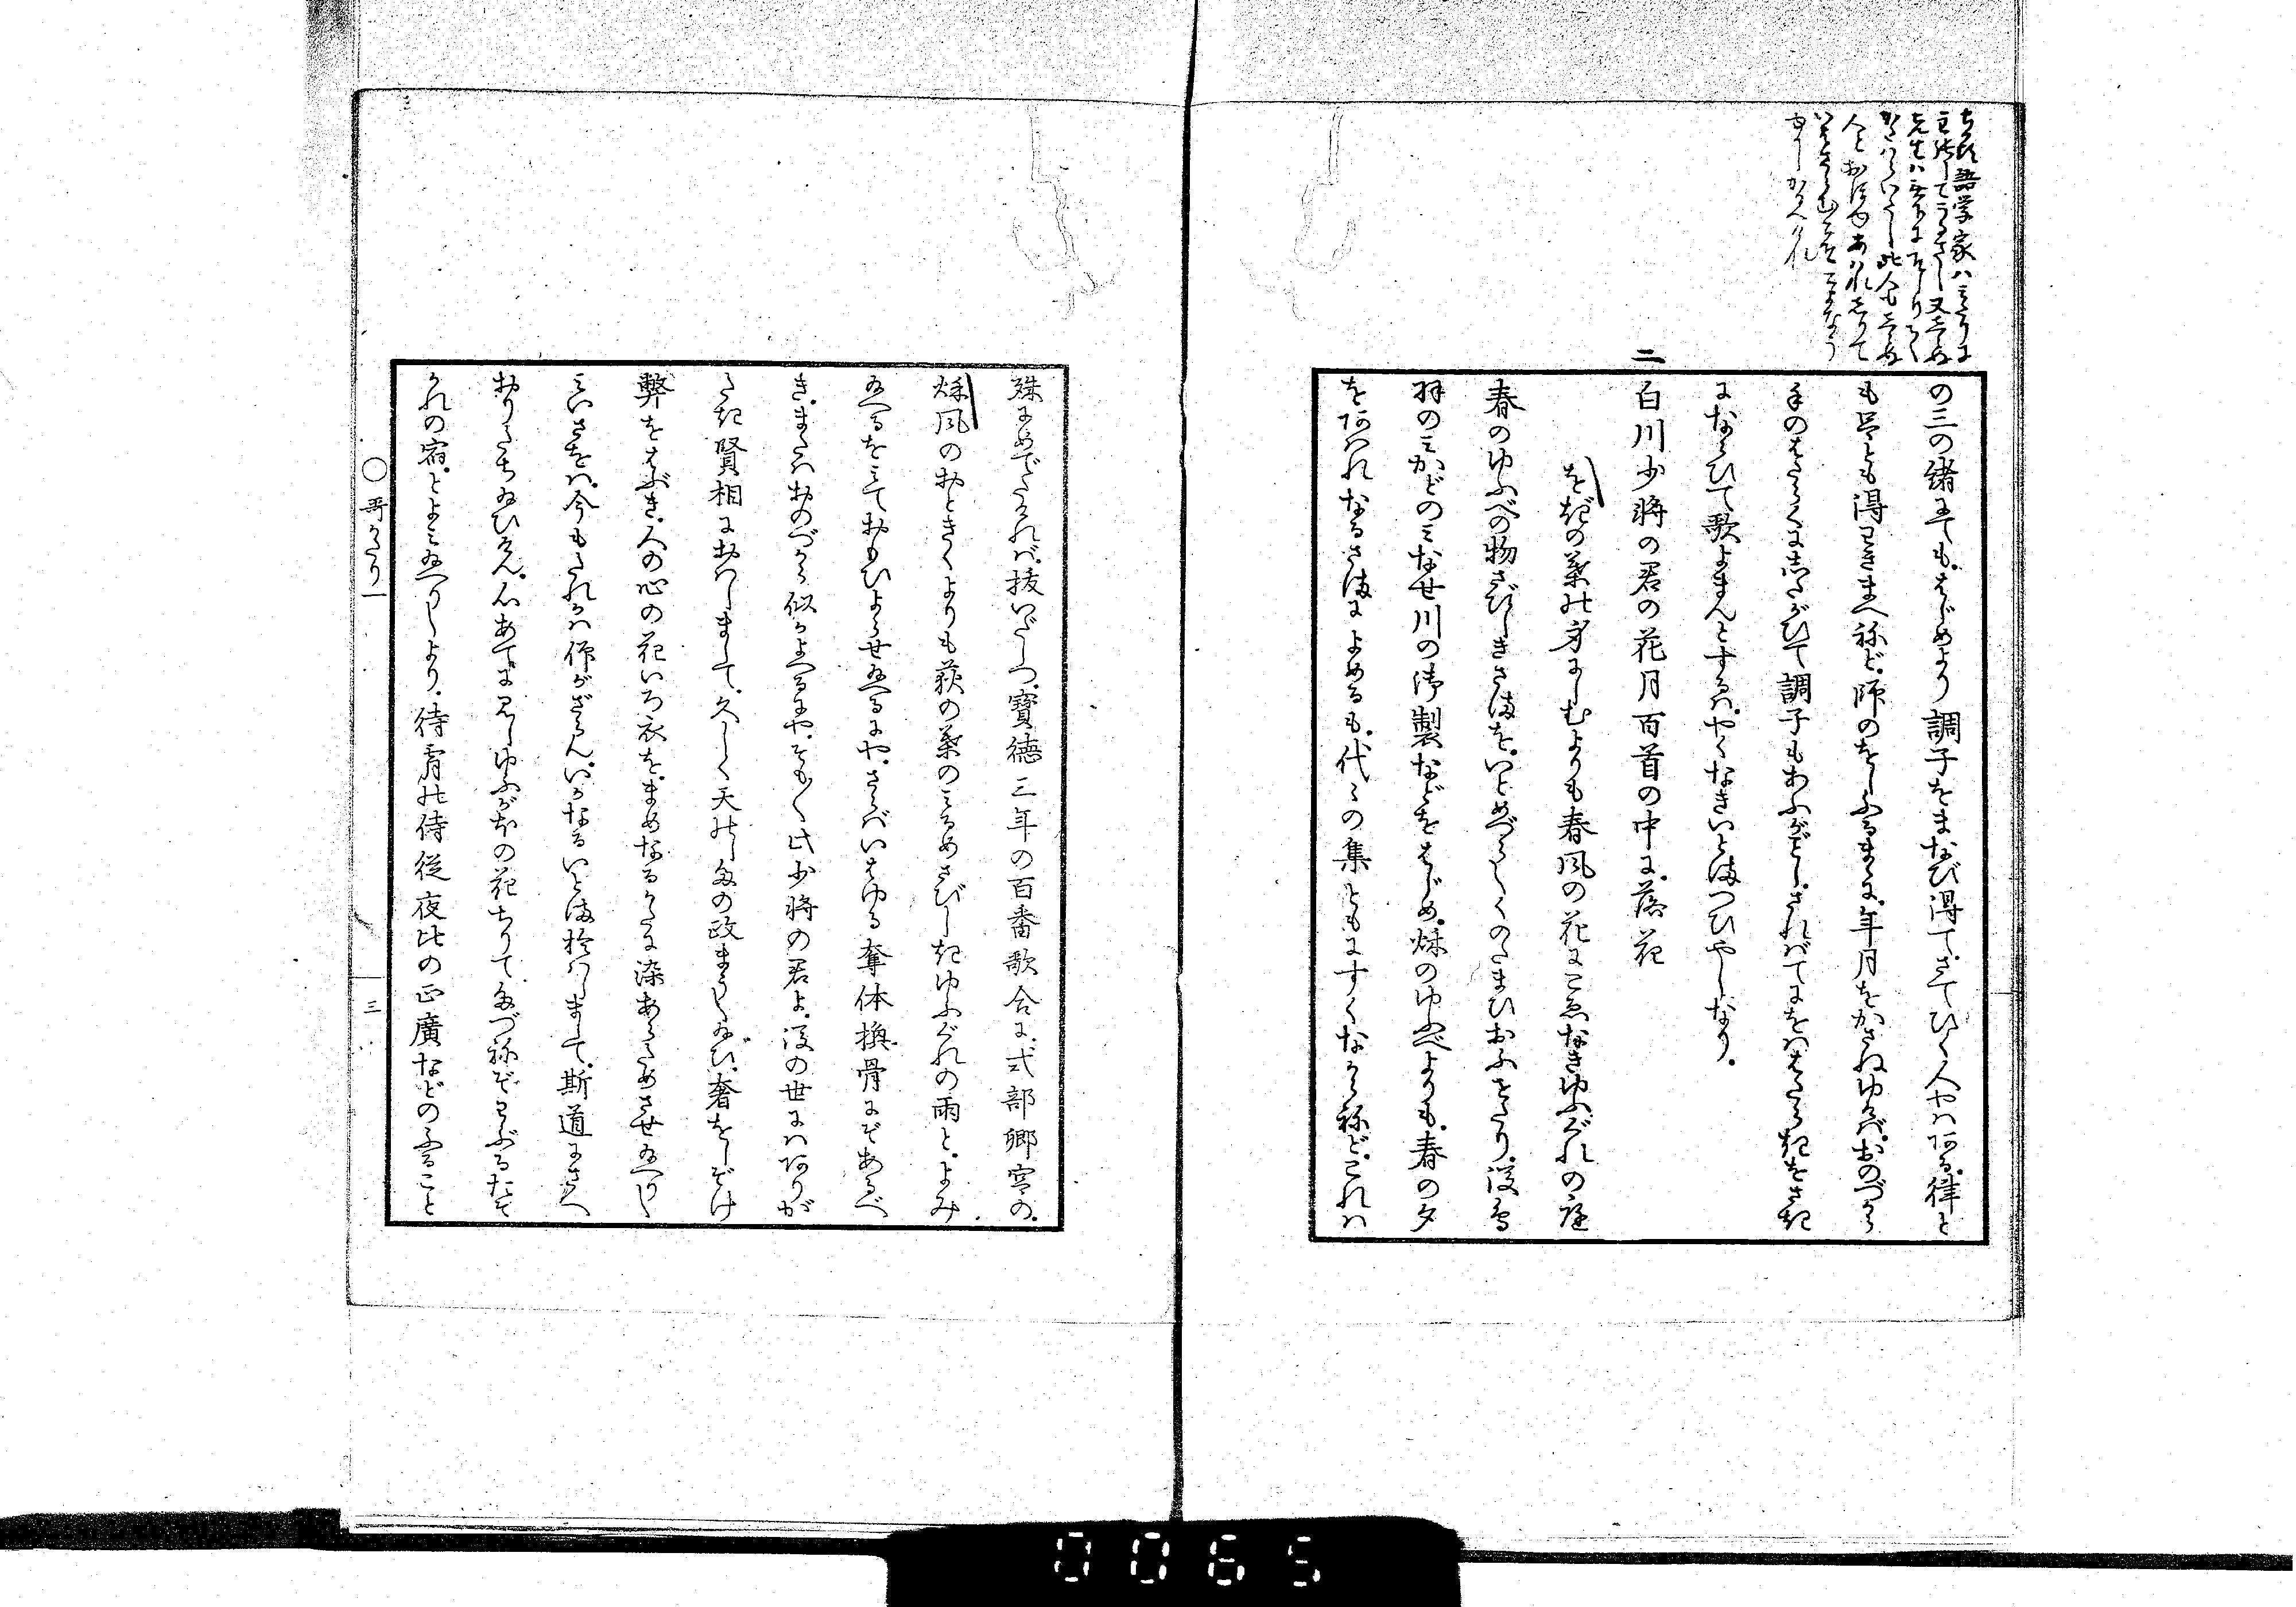 の三の緒にても。はじめより調子をまなび得て。さてひく人やはある。律と
も呂とも得わきまへねど。師のをしふるまゝに。年月をかさねゆけば。おのづから
手のはたらくにしたがひて調子もあふがごとし。さればてにをははたらきをさき
にならひて歌よまんとするは。やくなきいとまつひやしなり。
二
白川少将の君の花月百首の中に。落花
をぎの葉の身にしむよりも春風の花にこゑなきゆふぐれの庭
春のゆふべの物さびしきさまを。いとめづらしくのたまひおふせたり。後鳥
羽のみかどのみなせ川の御製などをはじめ。秋のゆふべよりも。春の夕
をあはれなるさまによめるも。代々の集ともにすくなからねど。これは
殊にめでたければ。抜いだしつ。寶徳三年の百番歌合に。式部卿宮の。
秋風のおときくよりも荻の葉のみるめさびしきゆふぐれの雨と。よみ
給へるをみておもひよらせ給へるにや。さらばいはゆる奪体換骨にぞあるべ
き。またはおのづから似かよへるにや。そも〳〵此少将の君よ。後の世にはありが
たき賢相におはしまして。久しく天の下の政まうし給ひ。奢をしぞけ
弊をはぶき。人の心の花いろ衣を。まめなるかたに染あらためさせ給へりし
みいさをは。今もたれかは仰がざらん。いかなるいとまおはしまして。斯道にさへ
おりたち給ひけん。心あてに見しゆふがほの花ちりてたづねぞわぶるたそ
かれの宿。とよみ給へりしより。待宵の侍従夜比の正廣などのふること
○哥かたり一
三
0065